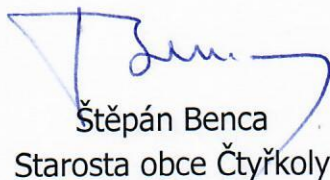 Štěpán Benca
Starosta obce Čtyřkoly